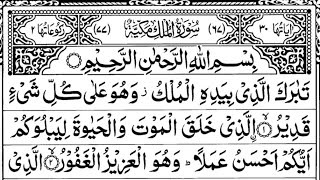 اٰیَاتُهَا ٣٠ (٦٧) سُوْرَةُ الْمُلْكِ مَكِّیَّةٌ (٧٧) رُكُوْعَاتُهَا ٢
بِسْمِ اللّٰهِ الرَّحْمٰنِ الرَّحِیْمِ
تَبٰرَكَ الَّذِیْ بِیَدِهِ الْمُلْكُ ز وَهُوَ عَلٰی كُلِّ شَیْءٍ
قَدِیْرُ ۙ﴿١﴾ ۨالَّذِیْ خَلَقَ الْمَوْتَ وَالْحَیٰوةَ لِیَبْلُوَكُمْ
اَیُّكُمْ اَحْسَنُ عَمَلًا ؕ وَهُوَ الْعَزِیْزُ الْغَفُوْرُ ۙ﴿٢﴾ الَّذِیْ